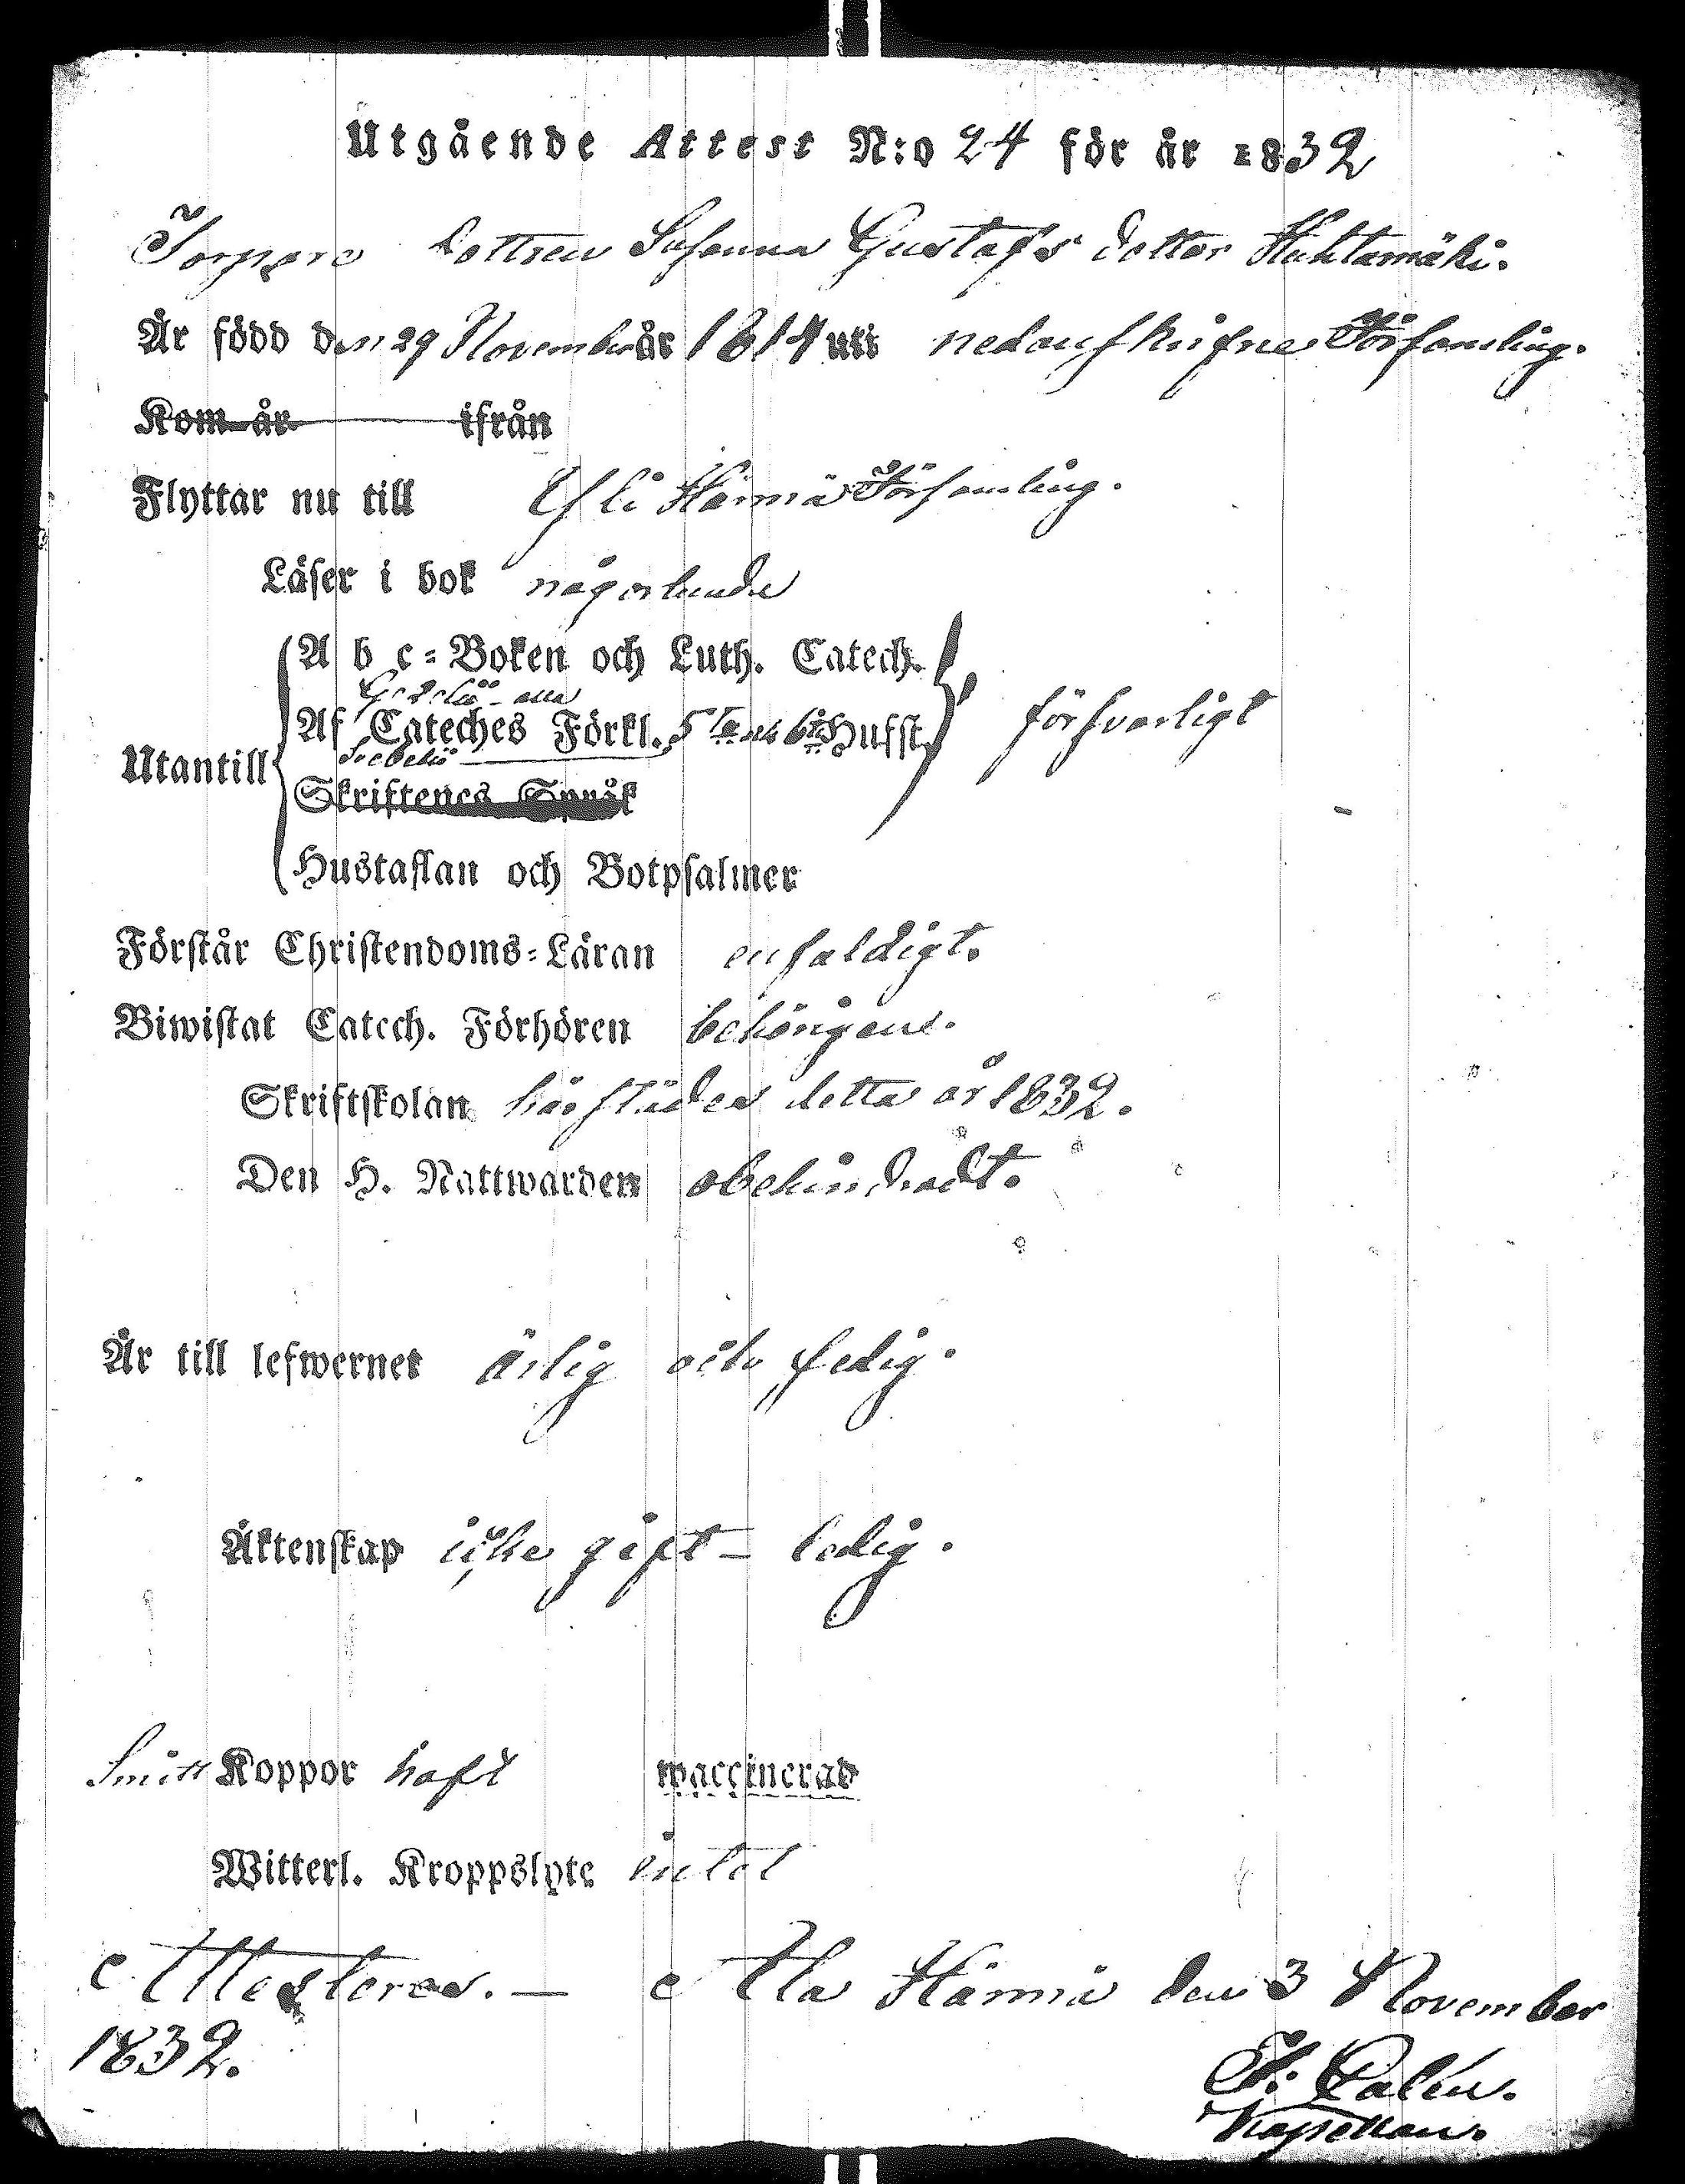 Utgående Attest N:o 24 för år 1832
Torpare Dottren Susanna Gustafs dotter Huhtamäki.
Är född den 29 November år 1814 uti nedanskrifne Församling.
Kom år ifrån
Flyttar nu till Ylihärmä Församling.
Läser i bok någorlunda
A b c-Boken och Luth. Catech.
Gezelii alla
Af Cateches Förkl. 5te och 6te Hufst. försvarligt
Svebelii
Utantill
Skriftenes Språk
Hustaflan och Botpsalmer
Förstår Christendoms-Läran enfaldigt.
Biwistat Catech. Förhören behörigen.
Skriftskolan härstädes detta år 1832.
Den H. Nattwarden obehindradt.
Är till lefwernet ärlig och fredlig.
Äktenskap icke gift - ledig.
Smitt Koppor haft waccinerad
Witterl. Kroppslyte intet
Attesteras. — Ala Härmä den 3 November
1832.
Kapellan.